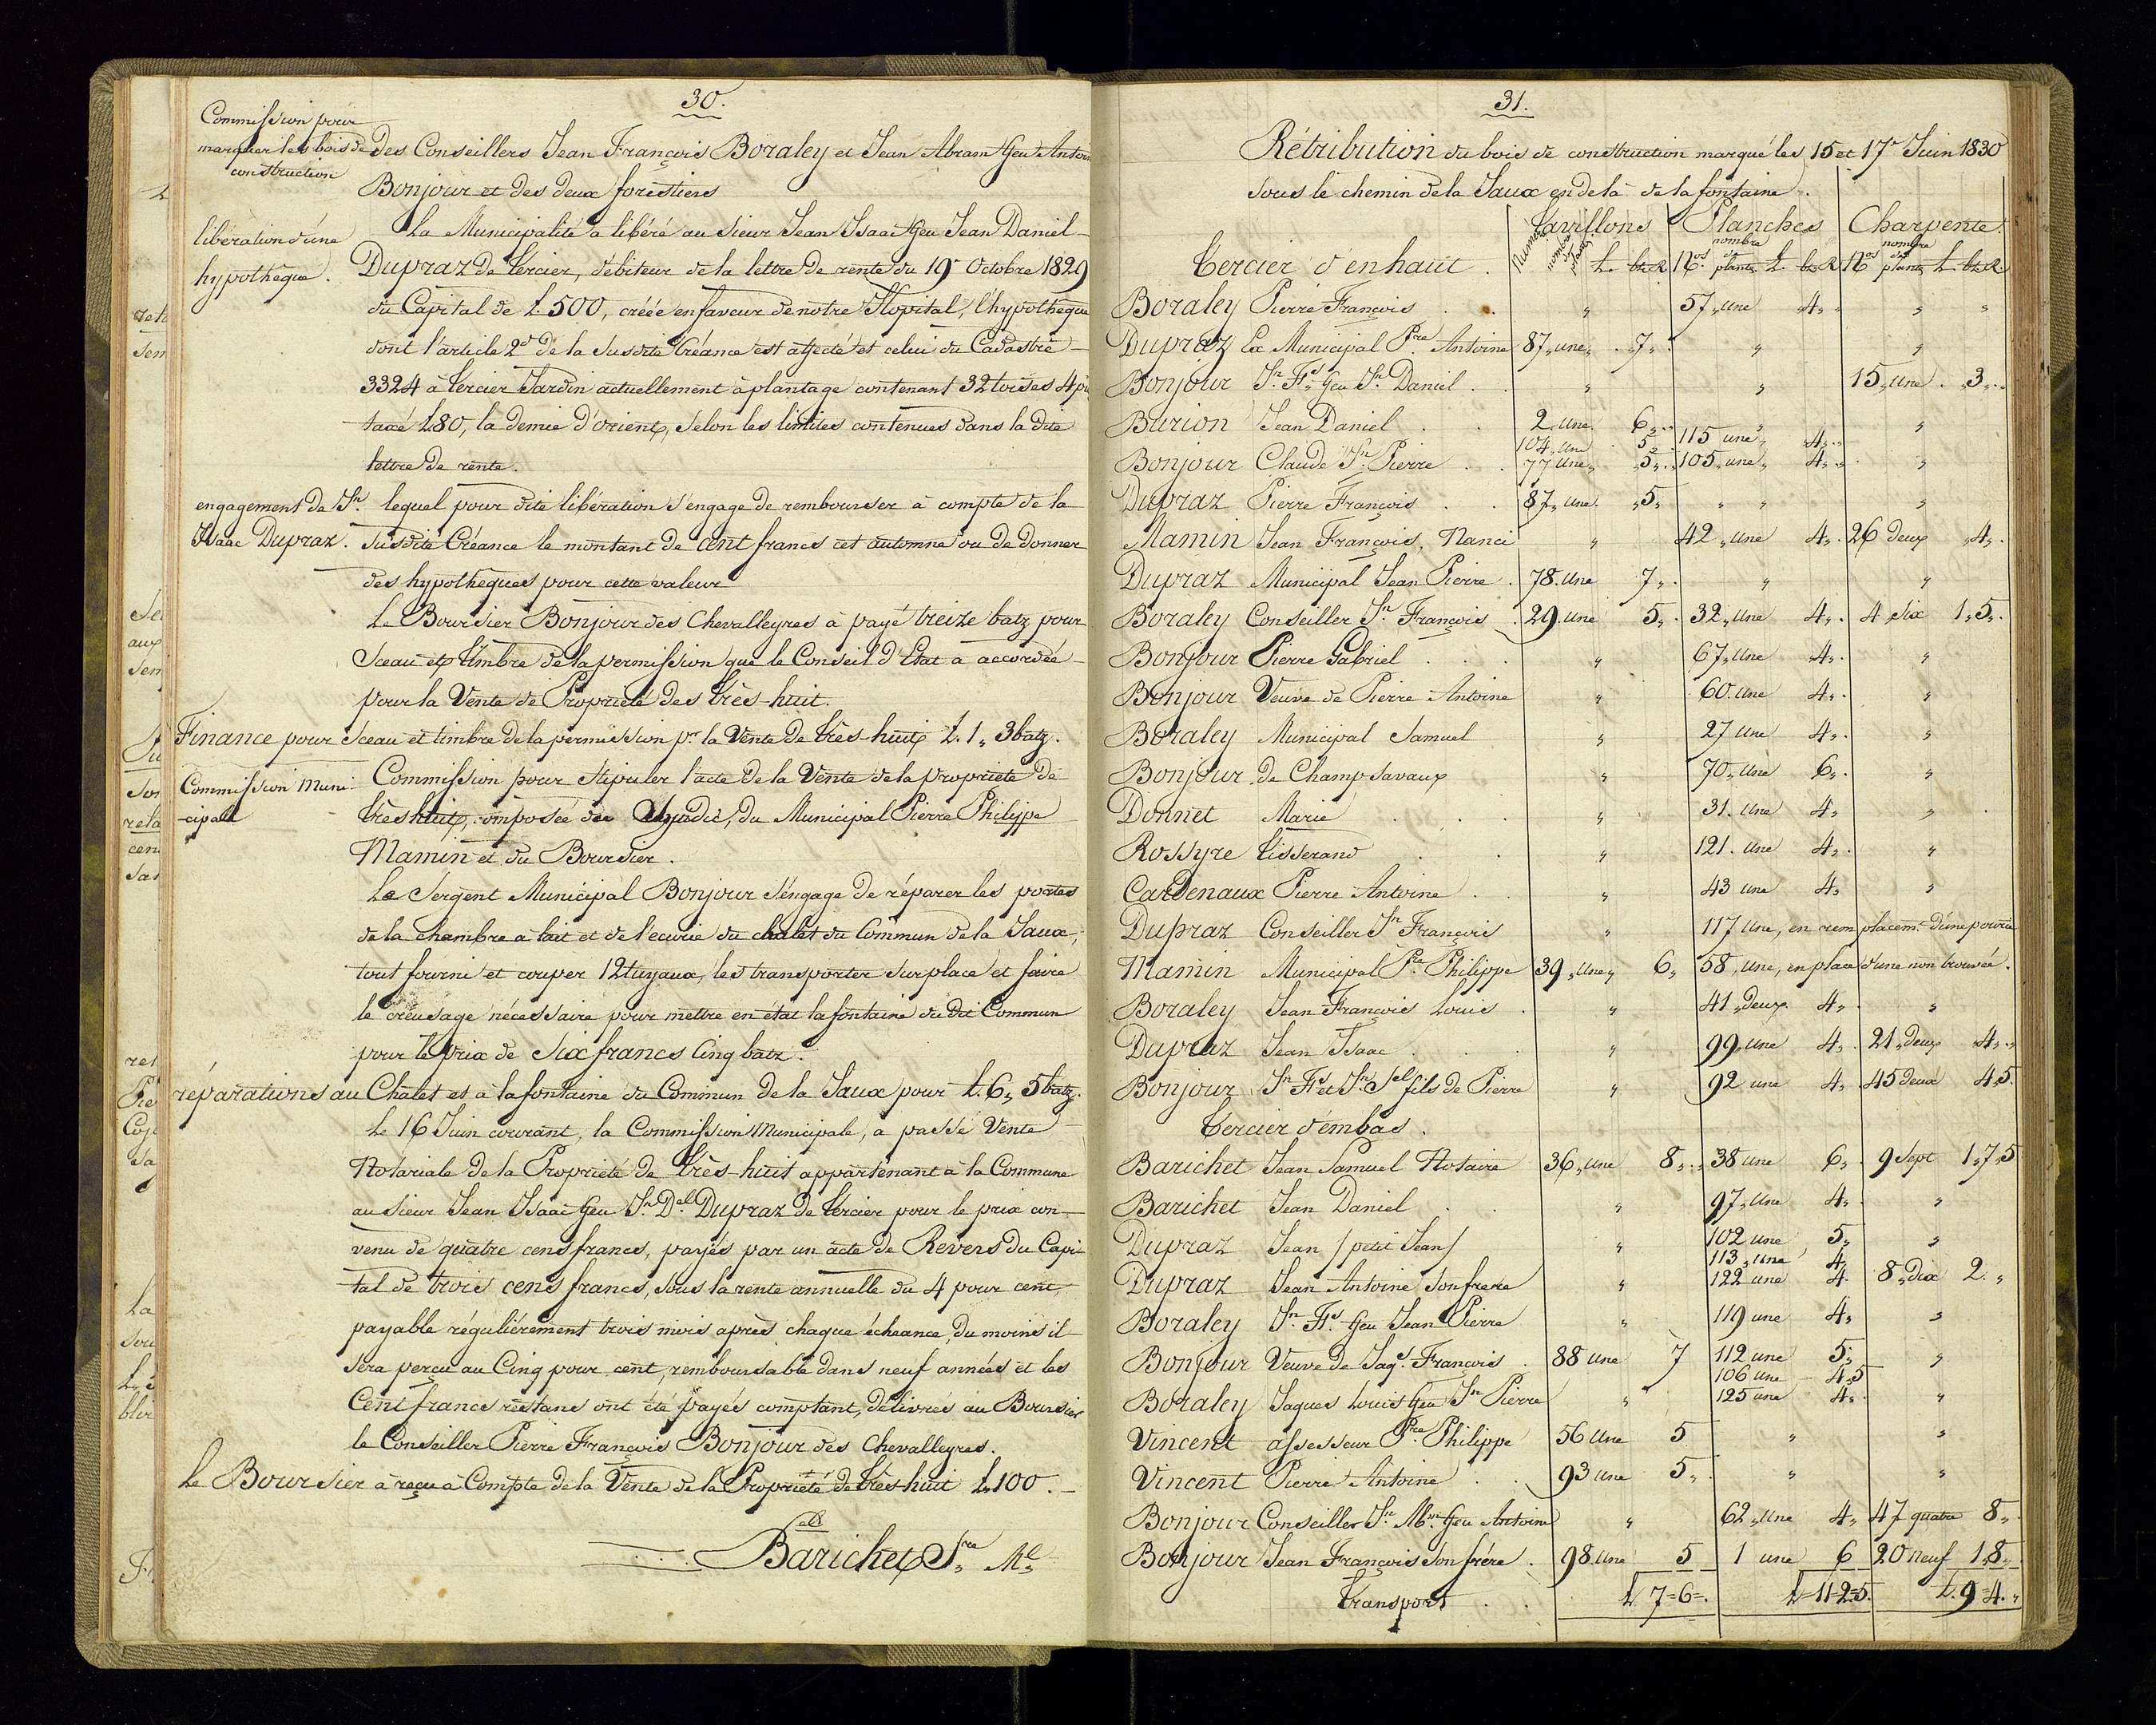 30.
Commission pour
marquer les bois de
construction
des Conseillers Jean François Boraley et Jean Abram feu Antoi
Bonjour et des deux forestiers
libération d'une
hypothèque.
La Municipalité a libéré au Sieur Jean Isaac feu Jean Daniel
Dupraz de Tercier, débiteur de la lettre de rente du 19e Octobre 1829
du Capital de L. 500, créée en faveur de notre Hopital, l'hypothèque
dont l'article 2d de la susdite Créance est affecté et celui du Cadastre
3324 à Tercier Jardin actuellement à plantage contenant 32 toises 4 pi
taxé L 80, la demie d'orient, selon les limites contenues dans la dite
lettre de rente.
engagement de Jn.
Isaac Dupraz.
lequel pour dite libération s'engage de rembourser à compte de la
susdite Créance le montant de cent francs cet automne ou de donner
des hypothèques pour cette valeur
Le Boursier Bonjour des Chevalleyres a payé treize batz pour
Sceau et timbre de la permission que le Conseil d'Etat a accordée
pour la Vente de Propriété des très-huit.
Finance pour Sceau et timbre de la permission pr. la Vente de très-huit L. 1„ 3 batz.
Commission Muni-
-cipale
Commission pour stipuler l'acte de la Vente de la propriété de
très huit, composée du Syndic, du Municipal Pierre Philippe
Mamin et du Boursier.
Le Sergent Municipal Bonjour s'engage de réparer les portes
de la chambre à lait et de l'écurie du chalet du Commun de la Saux,
tout fourni et couper 12 tuyaux, les transporter sur place et faire
le creusage nécessaire pour mettre en état la fontaine du dit Commun
pour le prix de Six francs Cinq batz.
réparations au Chalet et à la fontaine du Commun de la Saux pour L. 6„ 5 batz.
Le 16 Juin courant, la Commission Municipale, a passé Vente
Notariale de la Propriété de très-huit appartenant à la Commune
au Sieur Jean Isaac feu Jn. Del. Dupraz de Tercier pour le prix con-
venu de quatre cens francs, payés par un acte de Revers du Capi
tal de trois cens francs, sous la rente annuelle du 4 pour cent,
payable régulièrement trois mois après chaque écheance, du moins il
sera perçu au Cinq pour cent, remboursable dans neuf années et les
Cent francs restans ont été payés comptant, délivrés au Boursier
le Conseiller Pierre François Bonjour des Chevalleyres.
Le Boursier a reçu à Compte de la Vente de la Propriété de très-huit L. 100.
Barichet Sre Ml
31.
Rétribution du bois de construction marqué les 15 et 17e Juin 1830
sous le chemin de la Saux en delà de la fontaine.
Tavillons Planches Charpente
Numéro nombre des plantes L. bz. R Nos. nombre de plantes L. bz R Nos nombre des plantes L. bz R
Tercier d'enhaut.
Boraley Pierre François . . „ 57„ une „4„ „ „
Dupraz Ex Municipal Pre. Antoine 87„ une„ . 7„ . „ „
Bonjour Jn. Fs. feu Jn. Daniel . . „ „ 15„ Une . „3„
Burion Jean Daniel . . 2„ Une 6„ „ „
104„ Un . 5„ 115 une„ „4„
Bonjour Claude Jn. Pierre . . 77 Une„ „5„ 105„ une„ 4„ „
Dupraz Pierre François . . 87„ une. „5„ „ „ „
Mamin Jean François, Nanci „ 42„ Une 4„ . 26 Deux „4„ .
Dupraz Municipal Jean Pierre . 78. Une 7„ . „ „
Boraley Conseiller Jn. François . 29. Une 5„ . 32„ Une 4„ . 4 Six 1„5„ .
Bonjour Pierre Gabriel . . . „ 67„ Une 4„ . „
Bonjour Veuve de Pierre Antoine „ 60. Une 4„ . „
Boraley Municipal Samuel „ 27 Une 4„ . „
Bonjour de Champ Savaux „ 70„ Une 6„ . „
Donnet Marie . . . „ 31. Une 4„ „
Rossyre tisserand . . „ 121. Une 4„ . „
Cardenaux Pierre Antoine . . „ 43 Une 4„ „
Dupraz Conseiller Jn François „ 117 Une, en remplacemt. d'une pourrie
Mamin Municipal Pre. Philippe 39„ Une„ 6„ 58„ Une, en place d'une non trouvée.
Boraley Jean François Louis . „ 41„ Deux 4„ „
Dupraz Jean Isaac . . . „ 99„ Une 4„ . 21„ Deux 4„ „
Bonjour Jn. Fs. et Jn. Sel. fils de Pierre „ 92 une 4„ . 45 Deux 4„5.
Tercier d'embas.
Barichet Jean Samuel Notaire 36„ Une 8„ „ 38 Une 6„ . 9 Sept 1„7„5
Barichet Jean Daniel . . „ 97„ Une 4„ . „
Dupraz Jean / petit Jean / „ 102 Une 5„ „
113„ Une 4„
Dupraz Jean Antoine Son frere „ 122 Une 4. 8„ Dix 2„ „
Boraley Jn. Fs. feu Jean Pierre „ 119 une 4„ „
Bonjour Veuve de Jaqs. François . 88 Une 7 112 Une 5„ „
106 Une 4„5
Boraley Jaques Louis feu Jn Pierre „ 125 une 4„ . „
Vincent assesseur Pre. Philippe 56 Une 5 „ „
Vincent Pierre Antoine . . 93 Une 5„ . „ „
Bonjour Conseiller Jn. Abm. feu Antoine „ 62„ Une 4„ 47 quatre 8„ .
Bonjour Jean François Son frére . 98. Une 5 1 une 6 20 neuf 1„8„
Transport . . L 7=6=. L=11=2=5. L. 9=4. „